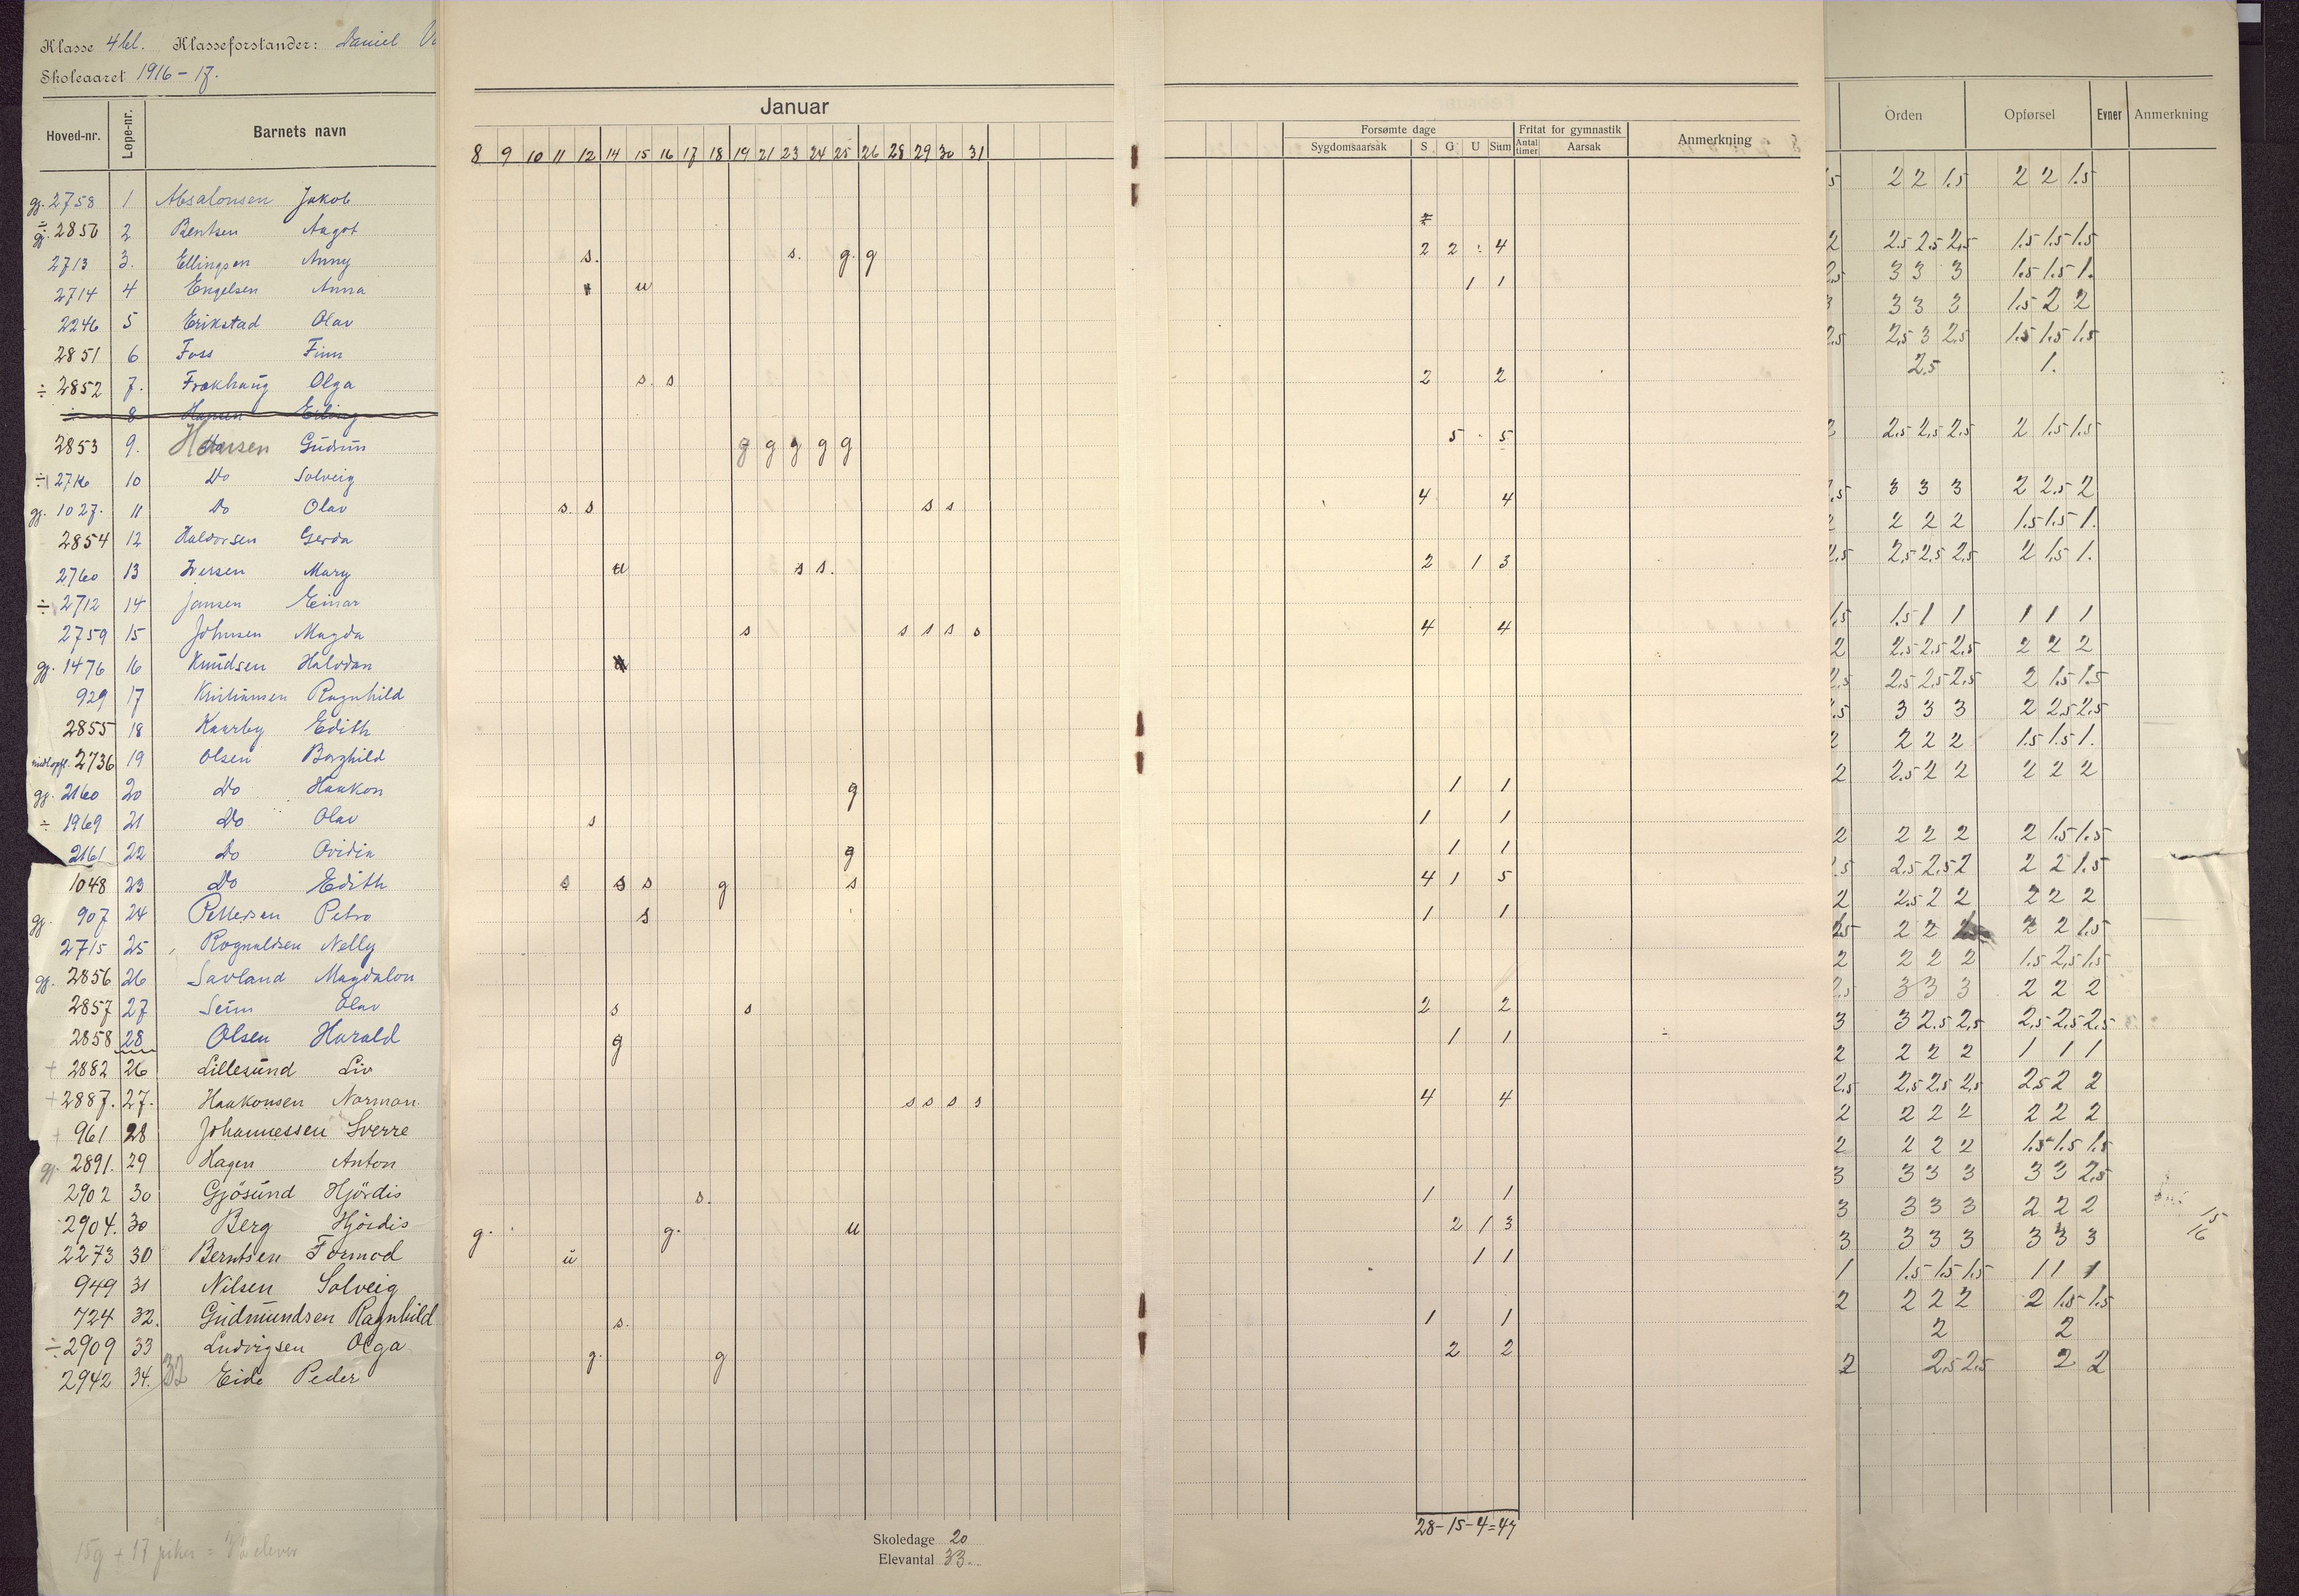 Klasse 4 kl. Klasseforstander: Daniel
Skoleaaret 1916-17.
Hoved-nr. Løpe-nr. Barnets navn
Januar
8 9 10 11 12 14 15 16 17 18 19 21 23 24 25 26 28 29 30 31
Forsømte dage Fritat for gymnastik Anmerkning
Sygdomsaarsak S G U Sum Antal timer Aarsak
Orden Opførsel Evner Anmerkning
gj. 2758 1 Absalonsen Jakob 1.5 2 2 1.5 2 2 1.5
÷ gj. 2856 2 Bentsen Aagot
2713 3. Ellingsen Anny s. s. g. g 2 2 4 2 2.5 2.5 2.5 1.5 1.5 1.5
2714 4 Engelsen Anna u 1 1 2.5 3 3 3 1.5 1.5 1.
2246 5 Erikstad Olav 3 3 3 3 1.5 2 2
2851 6 Foss Finn 2.5 2.5 3 2.5 1.5 1.5 1.5
÷ 2852 7. Frakhaug Olga s. s 2 2 2.5 1.
÷ 8 Hansen Erling
2853 9. Hansen Gudrun g g g g g 5 5 2 2.5 2.5 2.5 2 1.5 1.5
÷ 2716 10 Do Solveig
gj. 1027. 11 Do Olav s. s s s 4 4 2.5 3 3 3 2 2.5 2
2854 12 Haldorsen Gerda 2 2 2 2 1.5 1.5 1.
2760 13 Iversen Mary u s s. 2 1 3 2.5 2.5 2.5 2.5 2 1.5 1.
÷ 2712 14 Jansen Einar
2759 15 Johnsen Magda s s s s s 4 4 1.5 1.5 1 1 1 1 1
gj. 1476 16 Knudsen Halvdan 2 2.5 2.5 2.5 2 2 2
929 17 Kristiansen Ragnhild 2.5 2.5 2.5 2.5 2 1.5 1.5
2855 18 Kaarby Edith 2.5 3 3 3 2 2.5 2.5
2736 19 Olsen Borghild 2 2 2 2 1.5 1.5 1.
gj. 2160 20 Do Haakon g 1 1 2 2.5 2 2 2 2 2
÷ 1969 21 Do Olav s 1 1
2161 22 Do Ovidia g 1 1 2 2 2 2 2 1.5 1.5
1048 23 Do Edith s s s g s 4 1 5 2.5 2.5 2.5 2 2 2 1.5
gj. 907 24 Pettersen Petra s 1 1 2 2.5 2 2 2 2 2
2715 25 Rognaldsen Nelly 2 2 2 2 1.5
gj. 2856 26 Savland Magdalon 2 2 2 2 1.5 2.5 1.5
2857 27 Seim Olav s s 2 2 2.5 3 3 3 2 2 2
2858 28 Olsen Harald g 1 1 3 3 2.5 2.5 2.5 2.5 2.5
+ 2882 26 Lillesund Liv 2 2 2 2 1 1 1
+ 2887. 27. Haakonsen Norman s s s s 4 4 2.5 2.5 2.5 2.5 2.5 2 2
+ 961 28 Johannessen Sverre 2 2 2 2 2 2 2
gj. 2891. 29 Hagen Anton 2 2 2 2 1.5 1.5 1.5
2902 30 Gjøsund Hjördis s. 1 1 3 3 3 3 3 3 2.5
2904. 30 Berg Hjördis g. g. u 2 1 3 3 3 3 3 2 2 2 15
2273 30 Berntsen Tormod u 1 1 3 3 3 3 3 3 3 16
949 31 Nilsen Solveig 1 1.5 1.5 1.5 1 1 1
724 32. Gudmundsen Ragnhild s. 1 1 2 2 2 2 2 1.5 1.5
÷ 2909 33 Ludvigsen Olga g. g 2 2 2 2
2942 34. 32 Eide Peder 2 2.5 2.5 2 2
28 - 15 - 4 = 47
15g + 17 piker = elever
Skoledage 20
Elevantal 33.